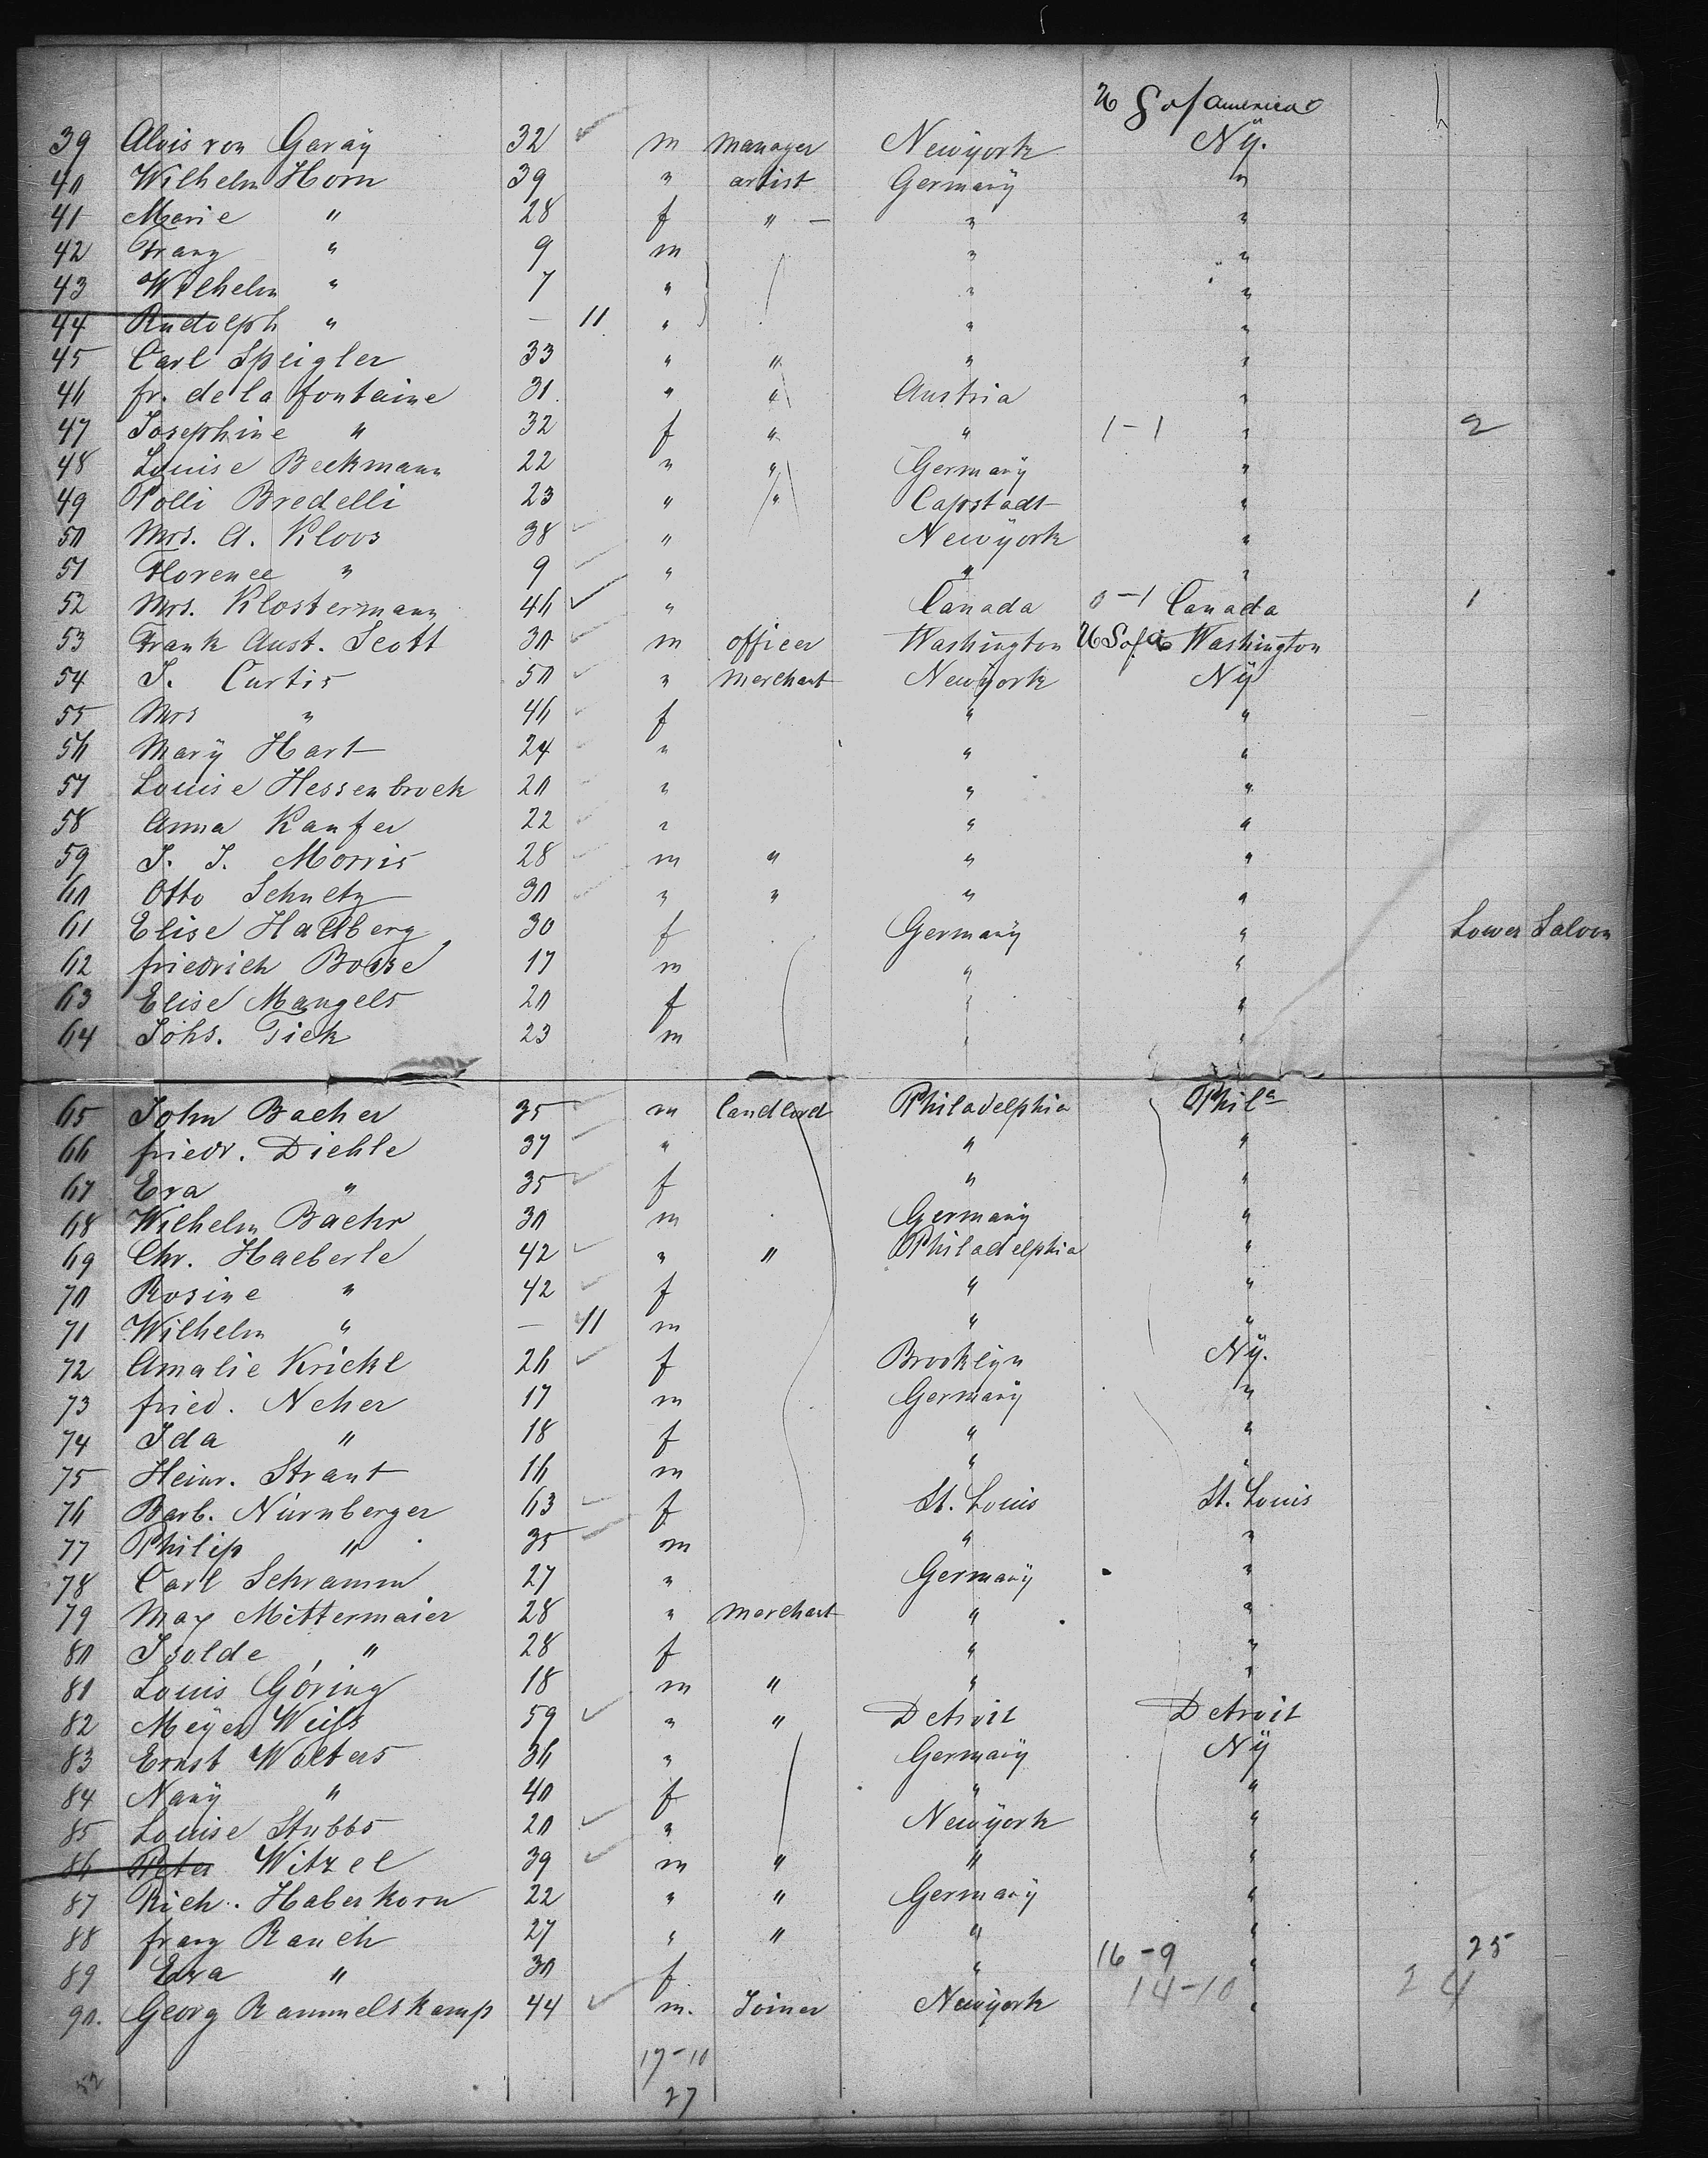 U S of America
39 Alois von Garaÿ 32 m manager Newÿork Nÿ.
40 Wilhelm Horn 39 " artist Germanÿ "
41 Marie " 28 f " — " "
42 Franz " 9 m " "
43 Wilhelm " 7 " " "
44 Rudolph " — 11 " " "
45 Carl Speigler 33 " " " "
46 fr. de la fontaine 31. " " Austria "
47 Josephine " 32 f " " 1-1 " 2
48 Louise Beekmann 22 " " Germanÿ "
49 Polli Bredelli 23 " " Capstadt "
50 Mrs. A. Kloos 38 " Newÿork "
51 Florence " 9 " " "
52 Mrs. Klostermann 46 " Canada 0-1 Canada 1
53 Frank Aust. Scott 30 m officer Washington U S of A Washington
54 J. Curtis 50 " Merchant Newÿork Nÿ
55 Mrs " 46 f " "
56 Marÿ Hart 24 " " "
57 Louise Hessenbroek 20 " " "
58 Anna Kaufer 22 " " "
59 J. J. Morris 28 m " " "
60 Otto Schuetz 30 " " " "
61 Elise Hallberg 30 f Germanÿ " Lower Saloon
62 friedrich Bosse 17 m " "
63 Elise Mangels 20 f " "
64 Johs. Tiek 23 m " "
65 John Bacher 35 m landlord Philadelphia Phila
66 friedr. Diehle 37 " " "
67 Eva " 35 f " "
68 Wilhelm Baehr 30 m Germanÿ "
69 Chr. Haeberle 42 " " Philadelphia "
70 Rosine " 42 f " "
71 Wilhelm " — 11 m " "
72 Amalie Krickl 26 f Brooklyn Nÿ.
73 fried. Neher 17 m Germanÿ "
74 Ida " 18 f " "
75 Heinr. Strant 16 m " "
76 Barb. Nürnberger 63 f St. Louis St. Louis
77 Philip " 35 m " "
78 Carl Schramm 27 " Germanÿ "
79 Max Mittermaier 28 " Merchant " "
80 Isolde " 28 f " "
81 Louis Göring 18 m " " "
82 Meÿer Weifs 59 " " Detroit Detroit
83 Ernst Wolters 36 " Germanÿ Nÿ
84 Nanÿ " 40 f " "
85 Louise Stubbs 20 " Newÿork "
86 Peter Witzel 39 m " " "
87 Rich. Haberkorn 22 " " Germanÿ "
88 franz Rauch 27 " " " "
89 Eva " 30 f " 16-9 " 25
90. Georg Rammelskamp 44 m. Joiner Newÿork 14-10 " 24
17-10
52 27